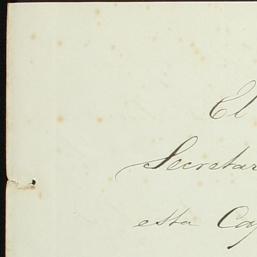 El
Secretar
esta Ca